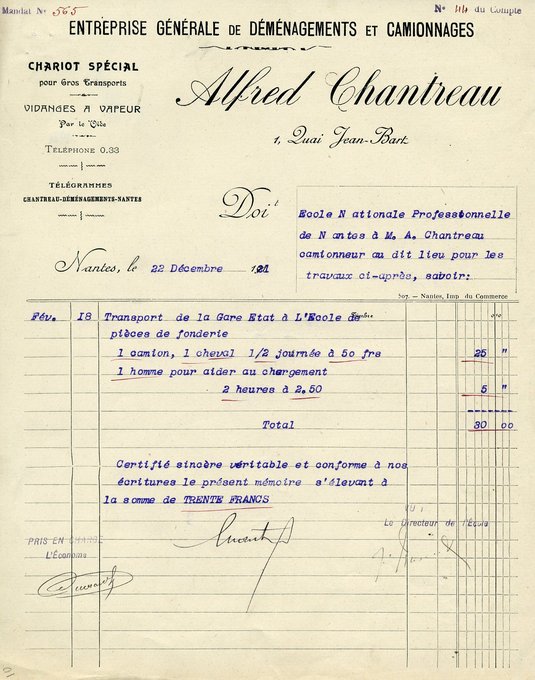 Mandat N° 565
N° 44 du Compte
ENTREPRISE GÉNÉRALE DE DÉMÉNAGEMENTS ET CAMIONNAGES
CHARIOT SPÉCIAL
pour Gros Transports
VIDANGES A VAPEUR
Par le Vide
TÉLÉPHONE 0.33
TÉLÉGRAMMES
CHANTREAU-DÉMÉNAGEMENTS-NANTES
Alfred Chantreau
1, Quai Jean-Bart
Doit
Ecole N ationale Professionnelle
de N antes à M. A. Chantreau
camionneur au dit lieu pour les
travaux ci-après, savoir:
Nantes, le 22 Décembre 1921
507. – Nantes, Imp du Commerce
Fév. 18 Transport de la Gare Etat à L'Ecole de
pièces de fonderie
1 camion, 1 cheval 1/2 journée à 50 frs 25 "
1 homme pour aider au chargement
2 heures à 2.50 5 "
Total 30 00
Certifié sincère véritable et conforme à nos
écritures le présent mémoire s'élevant à
la somme de TRENTE FRANCS
VU :
Le Directeur de l'École
PRIS EN CHARGE
L'Économe